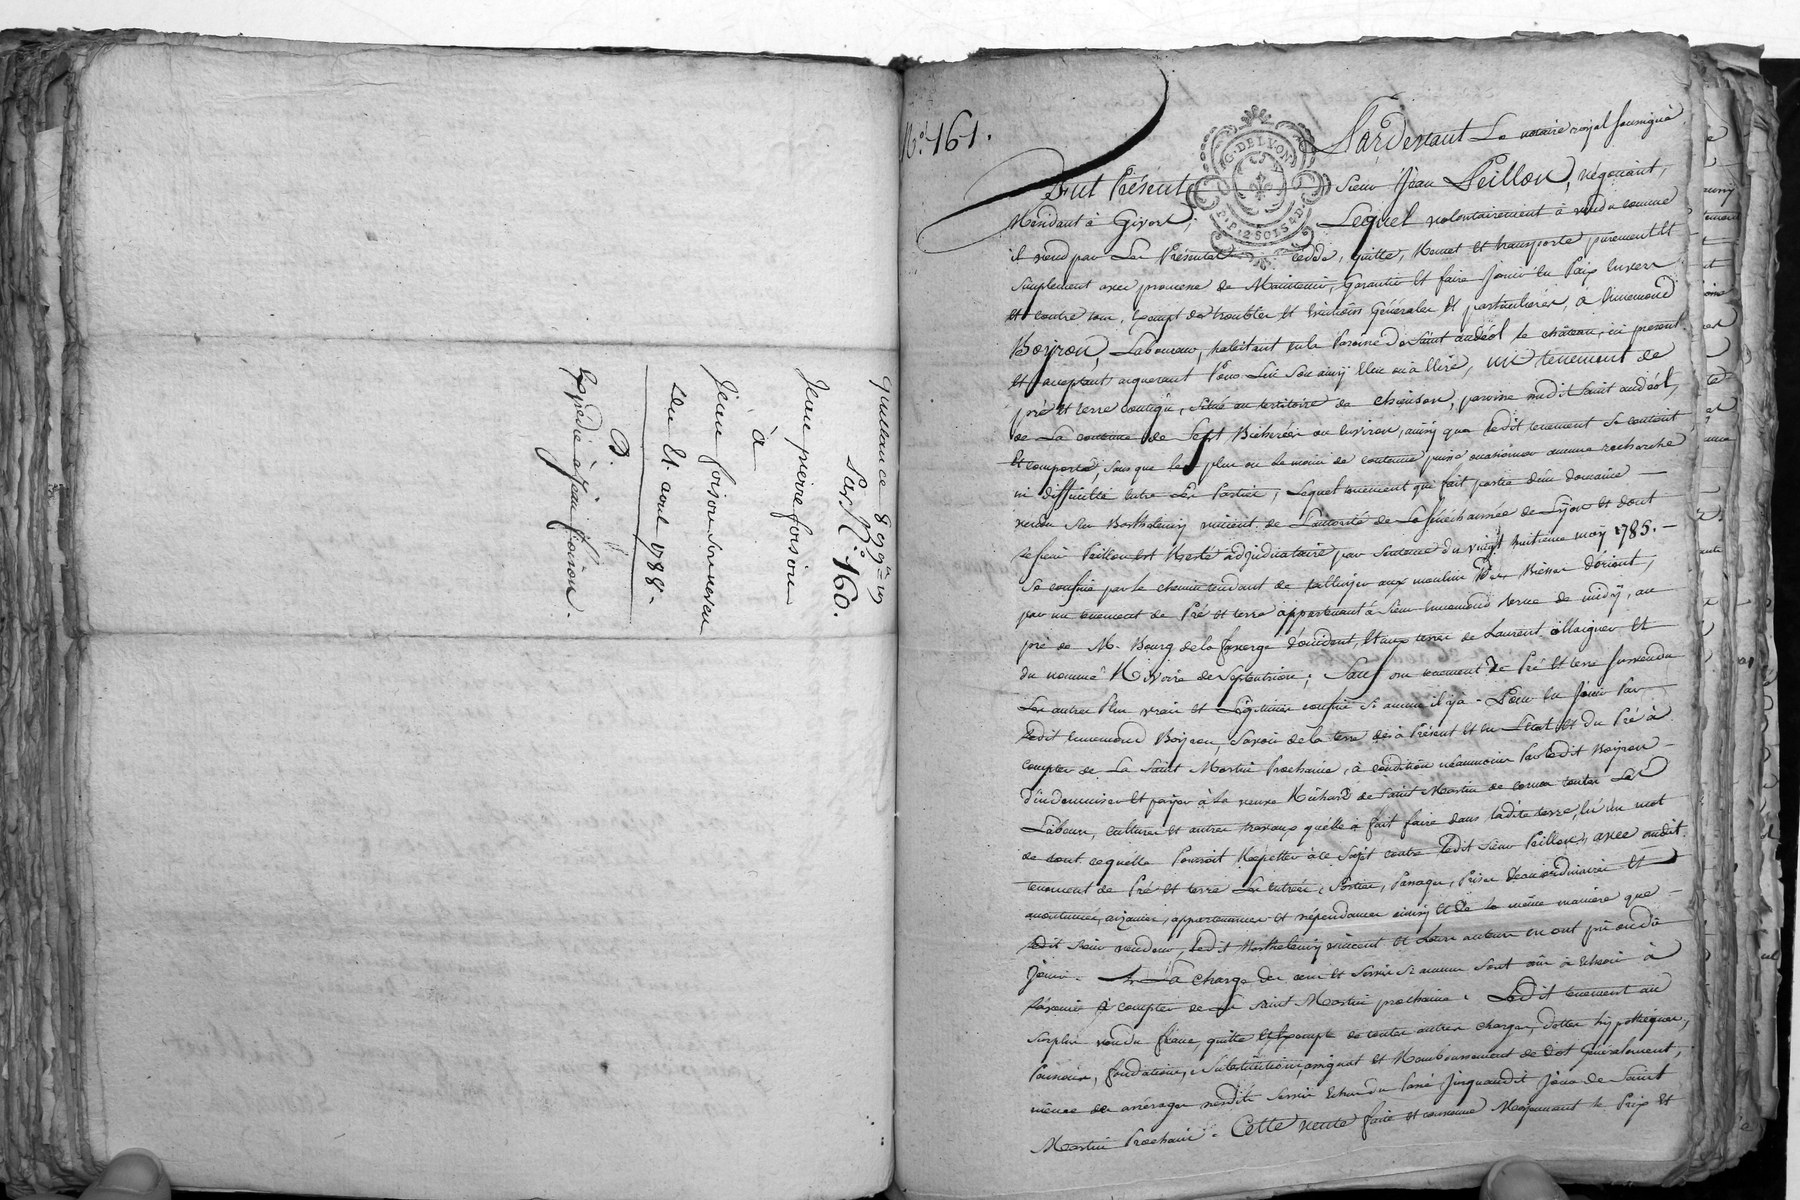 quittance
par N.° 160.
Jean pierre foision
à
Jean foision son neveu
Du 21. avril 1788.
D.
Expedié à Jean foision.
N.° 161.
G. DE LYON
P. P. 2 SOLS 4 D.
Pardevant Le notaire royal soussigné
Fut Présent sieur Jean Peillon, négociant,
Résidant à Givors; Lequel volontairement à vendu comme
il vend par Les Présentes cedde, quitte, Remet Et transporte purement Et
simplement avec promesse de Maintenir, Garantir Et faire Jouir En Paix Envers
Et contre tous, Exempt de troubles Et Evictions Générales Et particulieres, à Ennemond
Boiron, Laboureur, habitant en la Paroisse De Saint andéol le château, ici present
Et acceptant acquerant Pour Lui Son amy Elu ou à Elire, un tenement de
pré Et terre contigu, situé au territoire de Chienson, paroisse sudit Saint andéol,
de La contenue de Sept Bicherées ou Environ, ainsy que ledit tenement se contient
Et comporte, sans que le plus ou Le moins de contenue puisse occasionner aucune recherche
ni difficulté Entre Les Parties; Lequel tenement qui fait partie d'un domaine
vendu sur Barthelemy vincent de L'autorité de La sénéchaussée de Lyon Et dont
le sieur Peillon Est Resté adjudicataire par sentence du vingt huitieme may 1785.
Se confine par le chemin tendant de talluyer aux moulins De Bissac d'orient,
par un tenement de Pré Et terre appartenant à sieur Ennemond Serve de midy, au
pré de M. Bourg de la faverge d'occident, Et aux terres de Laurent Maignier Et
du nommé Rivoire de Septentrion; Sauf dudit tenement De Pré Et terre susvendu
Les autres Plus vrais Et Légitimes confins si aucuns il y à. Pour En Jouir Par
Ledit Ennemond Boiron, Savoir de la terre dès à Présent Et En L'Etat Et du Pré à
compter de La Saint Martin Prochaine, à condition néanmoins Par Ledit Boiron
d'indemniser Et payer à La veuve Richard de Saint Martin de cornas toutes Les
Labeurs, cultures Et autres travaux qu'elle à fait faire dans ladite terre, En un mot
de tout ce qu'elle Pourroit Repetter à ce Sujet contre Ledit sieur Peillon, avec audit
tenement de Pré Et terre Les entrées, Sorties, Passages, Prises d'eau ordinaires Et
accoutumées, aizances, appartenances Et dépendances ainsy Et de la même maniere que
Ledit sieur vendeur, Ledit Barthelemy vincent Et Leurs auteurs en ont pû ou dû
Jouir. à La charge des cens Et Servis si aucuns sont dûs à Echoir à
l'avenir à compter de La Saint Martin prochaine. Ledit tenement au
surplus vendu franc quitte Et Exempt de toutes autres charges, dettes hypothéques,
Pensions, fondations, Substitutions, assignat Et Remboursement de dot Généralement,
même des arrérages desdits servis Echus du Passé Jusqu'audit Jour de Saint
Martin Prochain. Cette vente faite Et convenue Moyennant le Prix Et